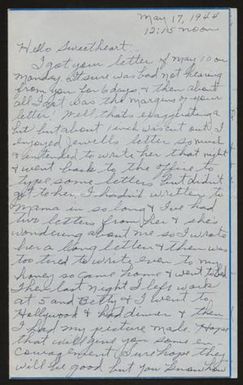 May 17, 1944
12:15 noon
Hello Sweetheart,
I got your letter of May 10 on
Monday. It sure was bad not hearing
from you for 6 days & then about
all I got was the margins of your
letter. Well that's exaggerating a
bit but about 1 inch was cut out. I
enjoyed Jewell's letter so much
& intended to write her that night
& went back to the office to
type some letters but didn't
get to her. I hadn't written to
Mama in so long & I've had
two letters from her & she's
wondering about me so I wrote
her a long letter & then was
too tired to write even to my
honey so came home & went to bed.
Then last night I left work
at 5 and Betty & I went to
Hollywood & had dinner & then
I had my picture made. Hope
that will give you some en-
couragement. Sure hope they
will be good but you know how